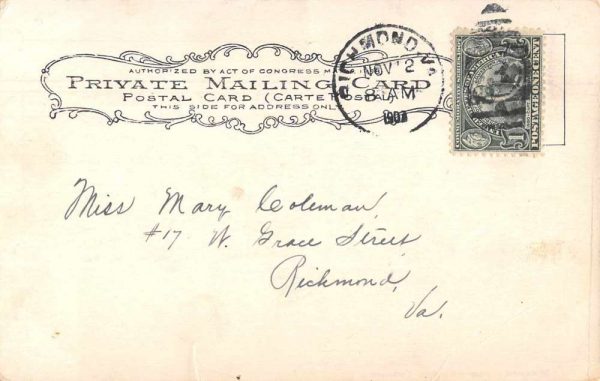 AUTHORIZED BY ACT OF CONGRESS MAY
PRIVATE MAILING CARD
POSTAL CARD (CARTE POSTALE
THIS SIDE FOR ADDRESS ONLY
RICHMOND, VA.
NOV 2
8 AM
1907
POSTAGE ONE CENT
Miss Mary Coleman,
#17 W. Grace Street,
Richmond,
Va.